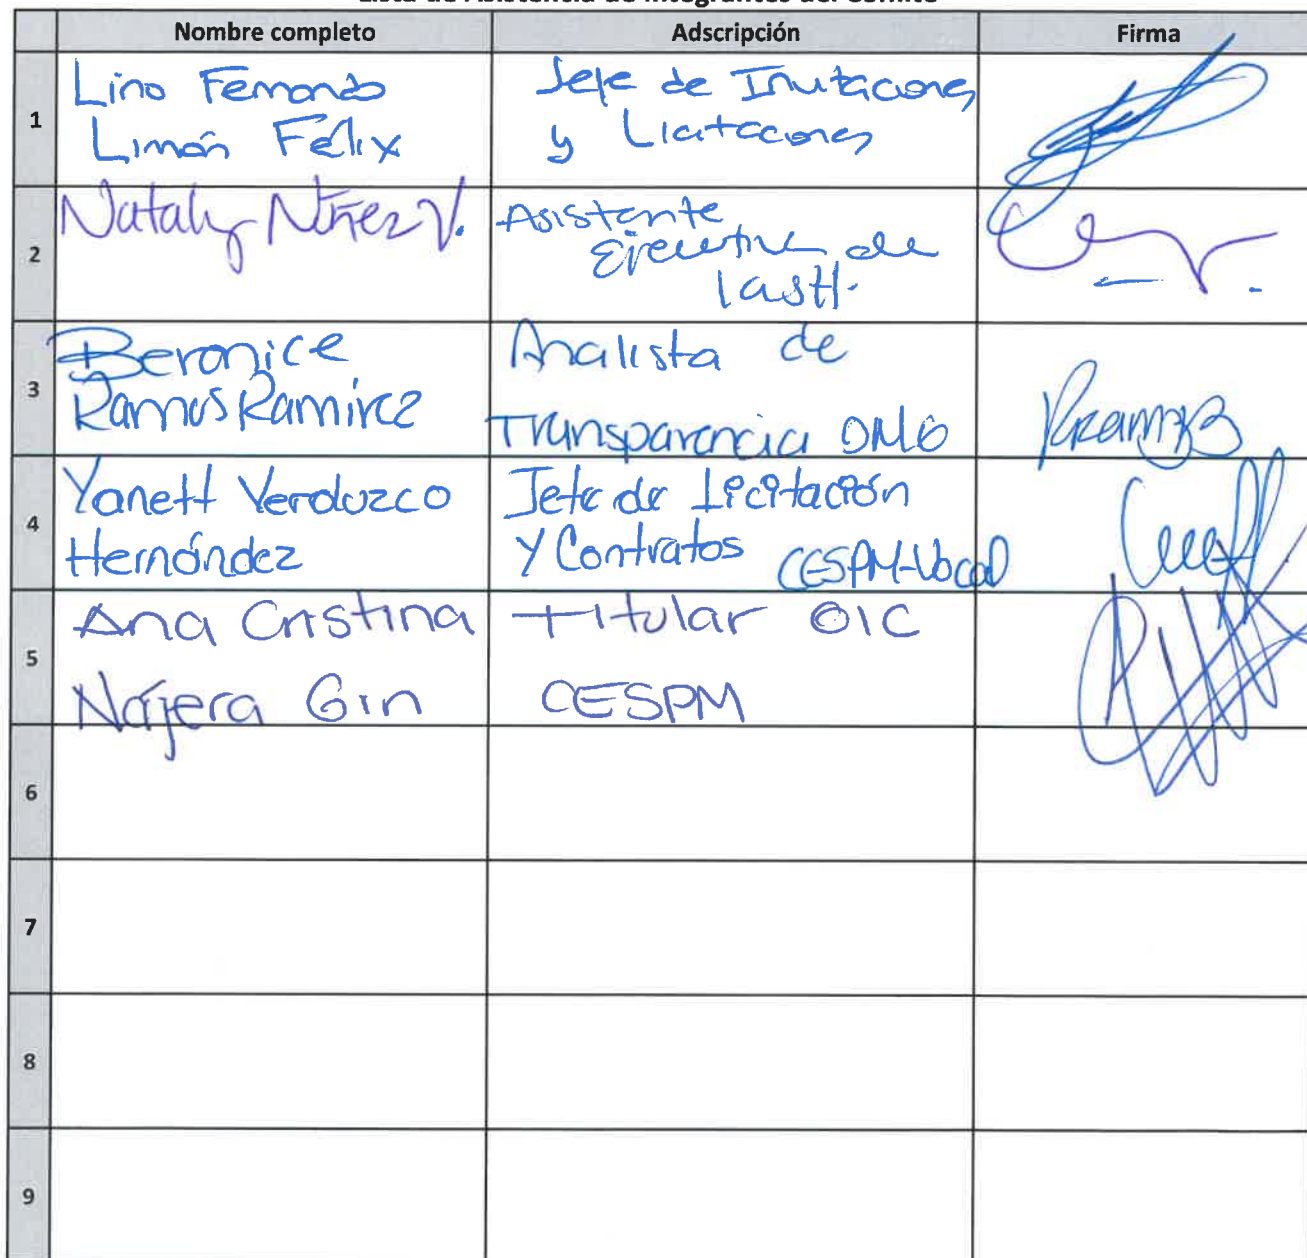 Lista de Asistencia de Integrantes del Comité
Nombre completo Adscripción Firma
1
Lino Fernando
Limón Félix
Jefe de Invitaciones
y Licitaciones
2
Nataly Núñez V.
Asistente
Ejecutiva de
3
Berenice
Ramos Ramírez
Analista de
Transparencia OMG
4
Yanett Verduzco
Hernández
Jefe de Licitación
Y Contratos
CESPM-Vocal
5
Ana Cristina
Nájera Gin
Titular OIC
CESPM
6
7
8
9